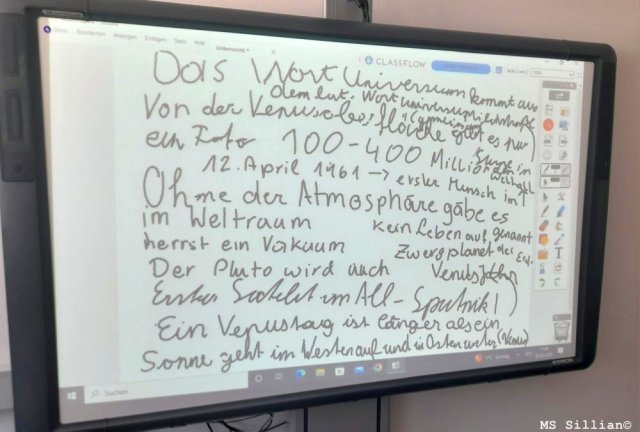 Datei Bearbeiten Anzeigen Einfügen Tools Hilfe Unbenannt *
CLASSFLOW
Das Wort Universum kommt aus
dem lat. Wort universum
Von der Venusoberfläche gibt es nur
ein Foto 100-400 Milliarden
12. April 1961 → erster Mensch im
Ohne der Atmosphäre gäbe es
kein Leben auf
im Weltraum
herrst ein Vakuum
Zwergplanet
genannt
Der Pluto wird auch
Venusjahr
Erster Satelit im All - Sputnik 1
Ein Venustag ist länger als ein
Sonne geht im Westen auf und in Osten unter (Venus)
Suchen
MS Sillian©